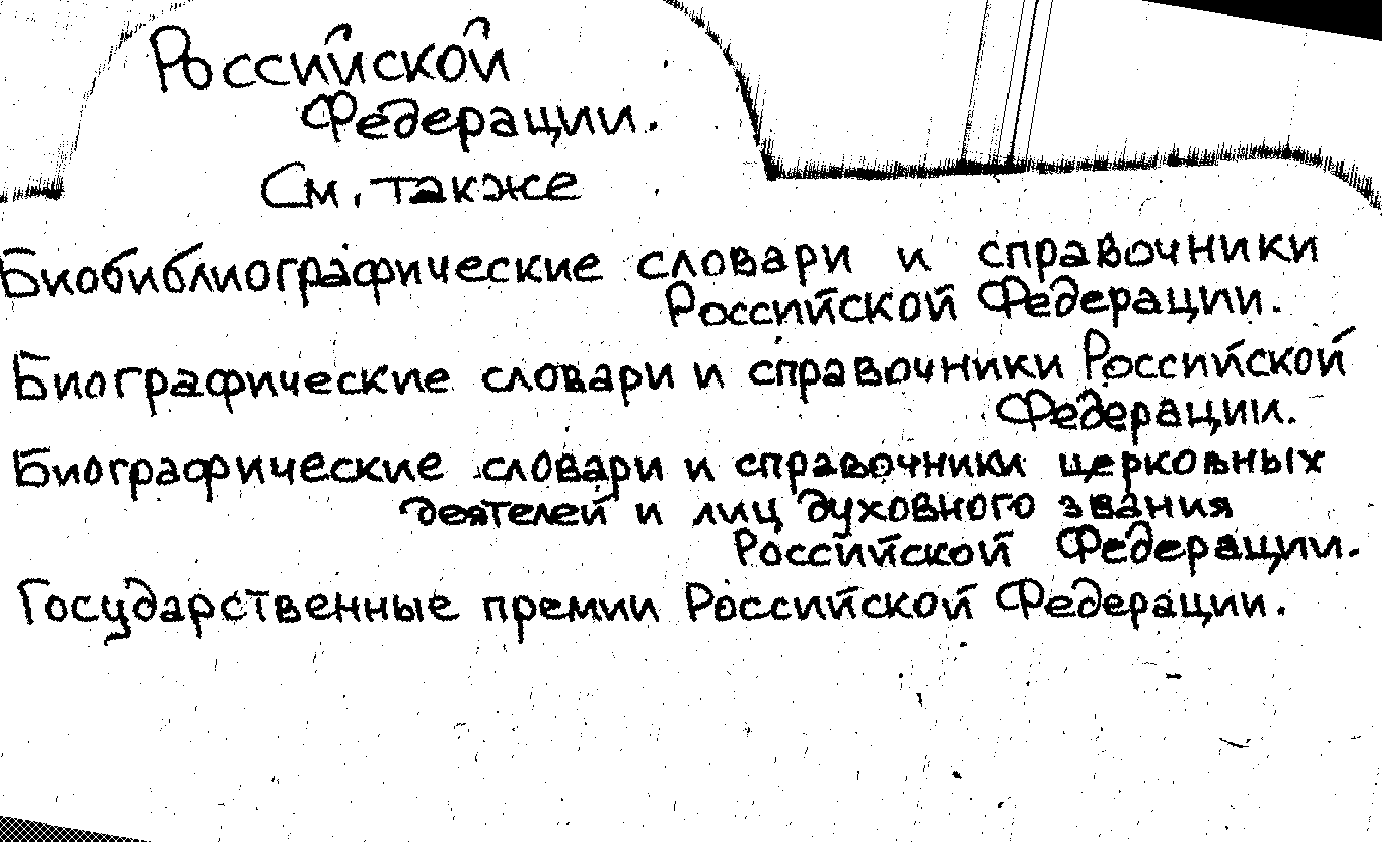 Российской
Федерации.
См. также
Биобиблиографические словари и справочники
Российской Федерации.
Биографические словари и справочники Российской
Федерации.
Биографические словари и справочники церковных
деятелей и лиц духовного звания
Российской Федерации.
Государственные премии Российской Федерации.